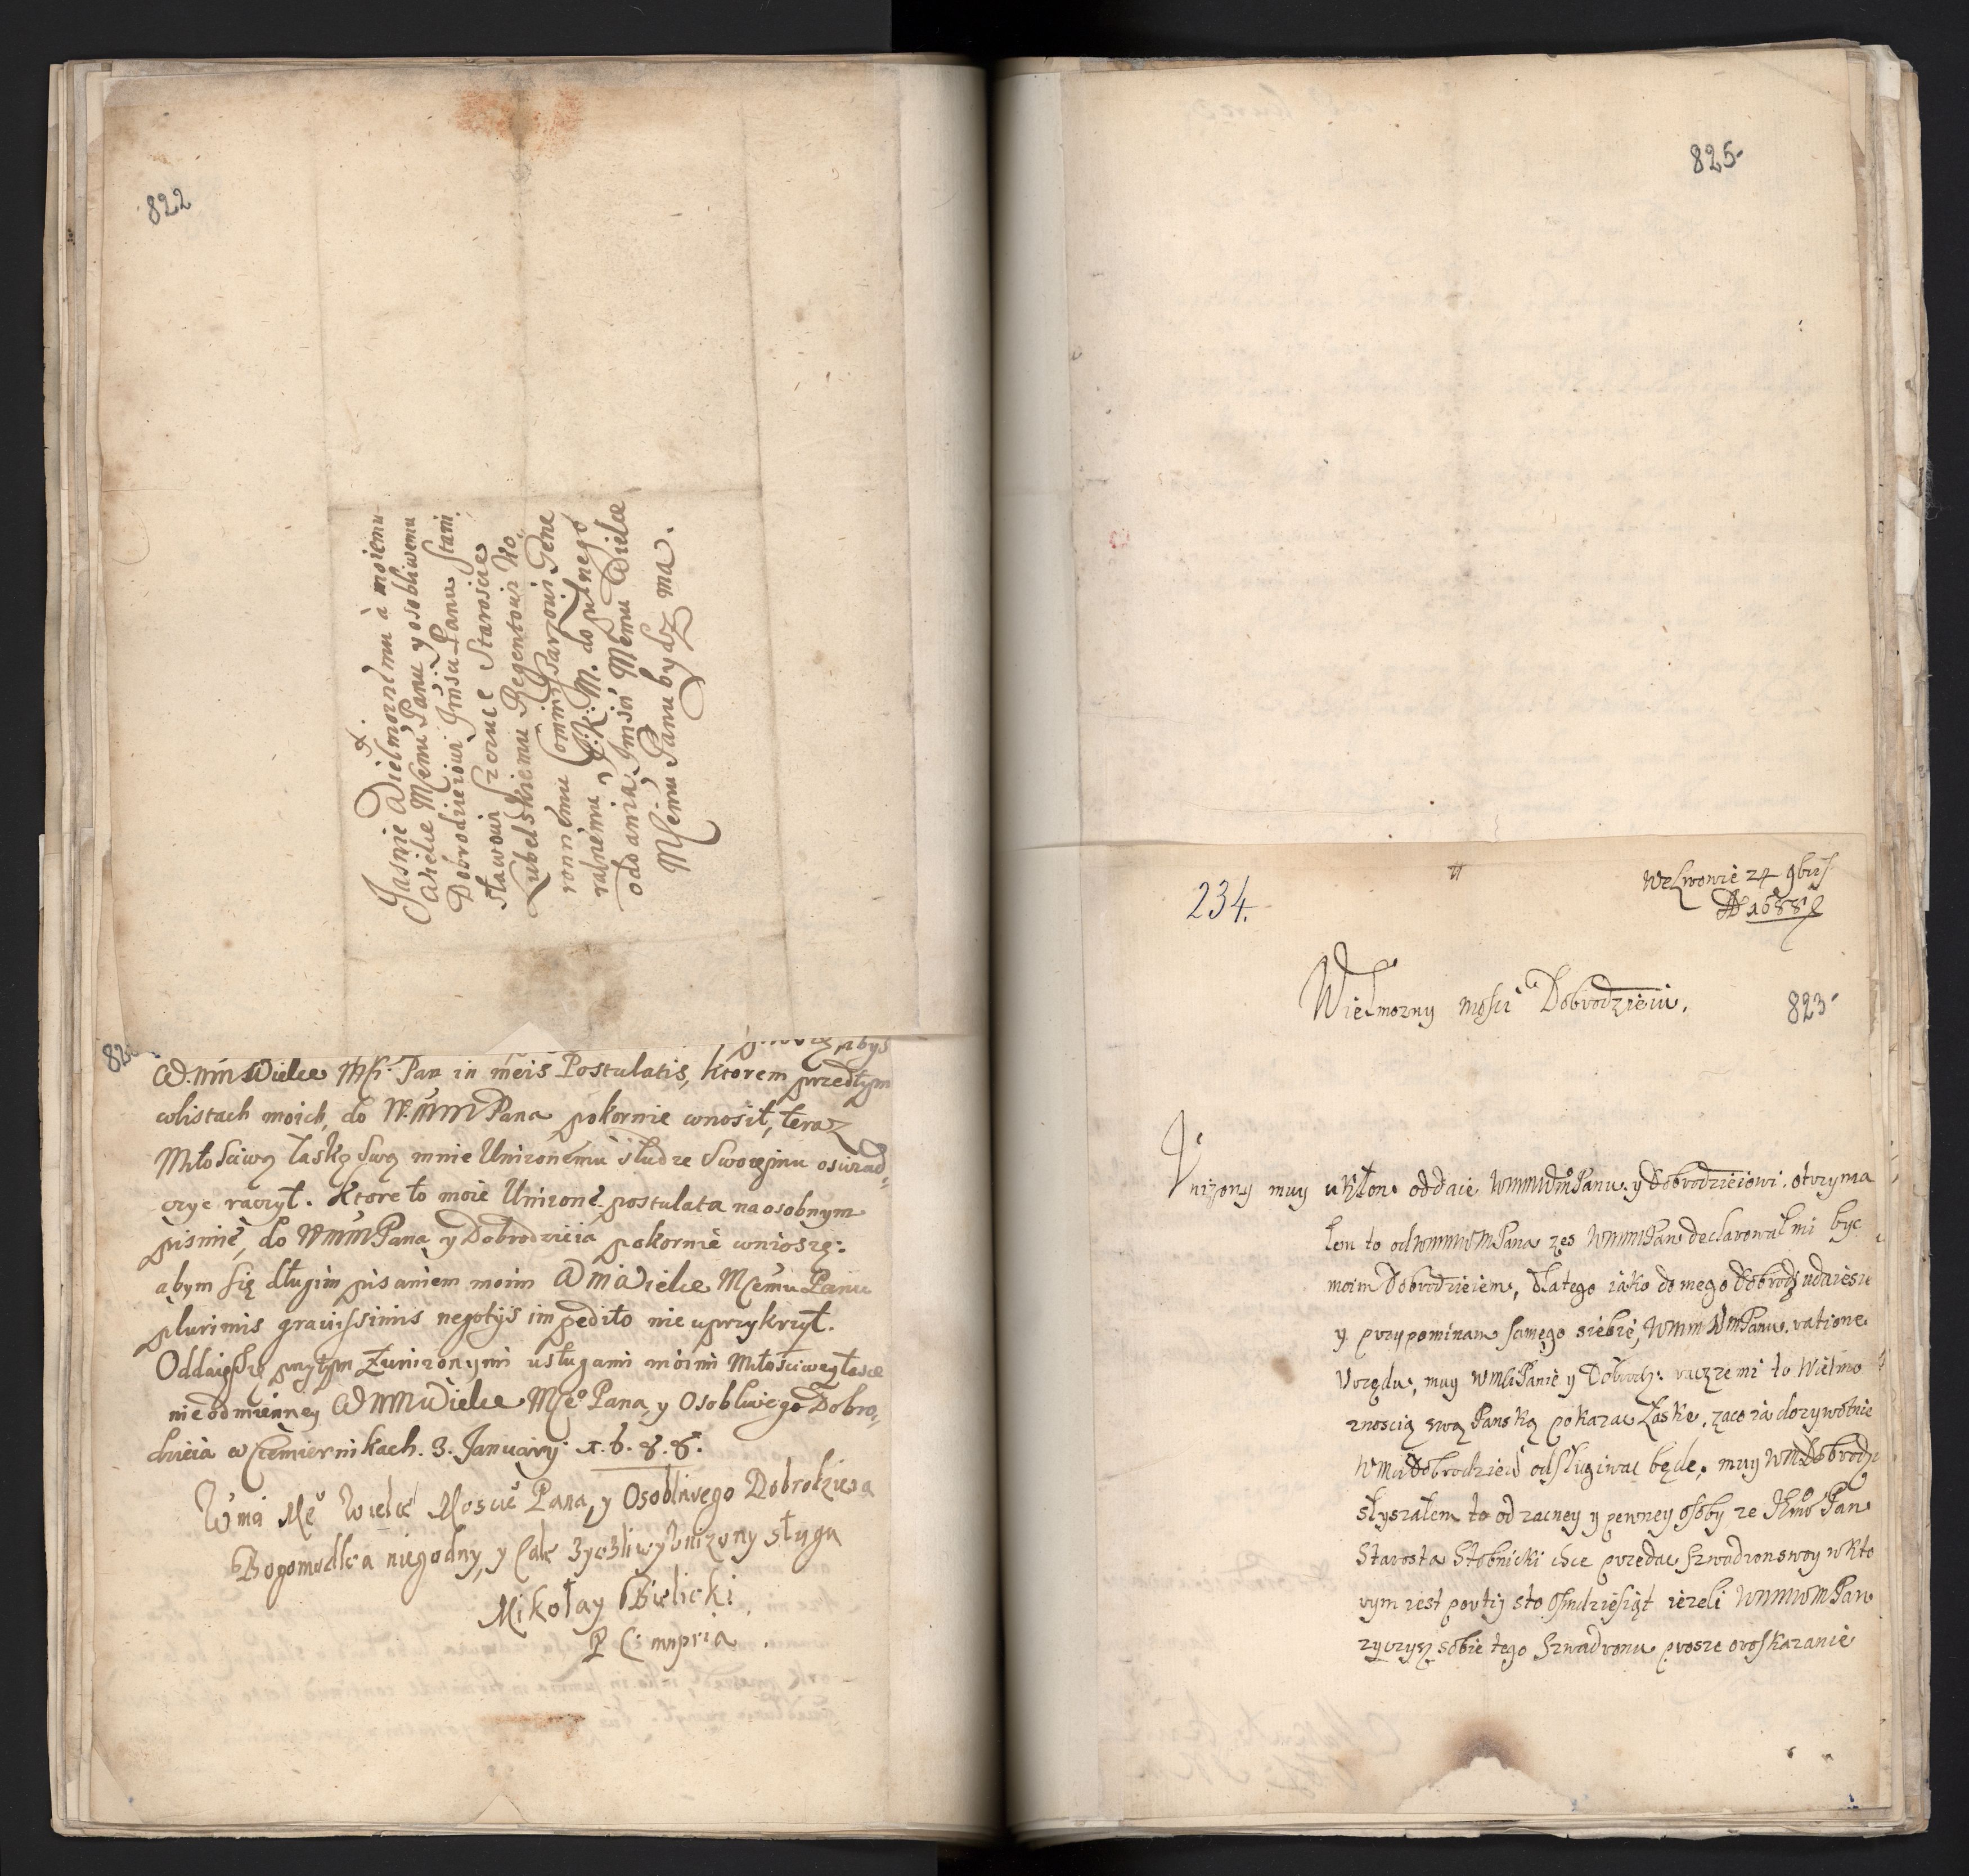 822
Jasnie Wielmoznemu à moiemu
Wielce Memu Panu y osobliwemu
Dobrodzieiowi Jmsci Panu Stani
sławowi Szczuce Staroscie
Lubelskiemu Regentowi Ko
ronnemu Commissarzowi Gene
ralnemu J. K. M. do pulnego
oddania Jmsci Memu Wielce
Mscimu Panu bydz ma.
abys
Wielce Pan in meis Postulatis, ktorem przedtym
wlistach moich, do WMM Pana pokornie wnosił, teraz
Miłosciwą łaską swą mnie Unizonemu słudze Swoięmu oswiad
czyc raczył. Ktore to moie Unizone postulata na osobnym
pismie, do WMM Pana y Dobrodzieia pokornie wnioszę:
abym się długim pisaniem moim Wielce Mcemu Panu
plurimis gravissimis negotijs impedito nie uprzykrzył.
Oddaięsię przytym Zunizonymi usługami moimi Miłosciwey łasce
nieodmienney Wielce Mego Pana, y Osobliwego Dobro
dzieia w Czemiernikach. 3. January. 1.6.8.8.
Wielce Mosciē Pana, y Osobliwego Dobrodzieia
Bogomodlca niegodny, y Cale zyczliwy Unizony sługa
Mikołay Bielicki
P C mppria.
825
234.
We Lwowie 24 9bris
AD 1688
Wielmozny mosci Dobrodzieiu.
823
Unizony muy ukłon oddaie WMMWM Panu y Dobrodzieiowi. otrzyma
łem to od WMMWM Pana zes WMM Pan declarował mi byc
moim Dobrodzieiem, dlatego iako do mego Dobrodz udaiesie
y przypominam samego siebie, WMMWM Panu, ratione
Urzędu, muy WMci Panie y Dobrodz: racz ze mi to Wielmo
znoscią swą Panską pokazac Łaskę, zaco ia dozywotnie
WMci Dobrodzieiu odsługiwac będe. muy WM Dobrodz
słyszałem to od zacney y pewney osoby ze Jmo Pan
Starosta Stobnicki chce przedac szwadron swoy w kto
rym iest portij sto osmdziesiąt iezeli WMMWM Pan
zyczysz sobie tego szwadronu prosze oroskazanie